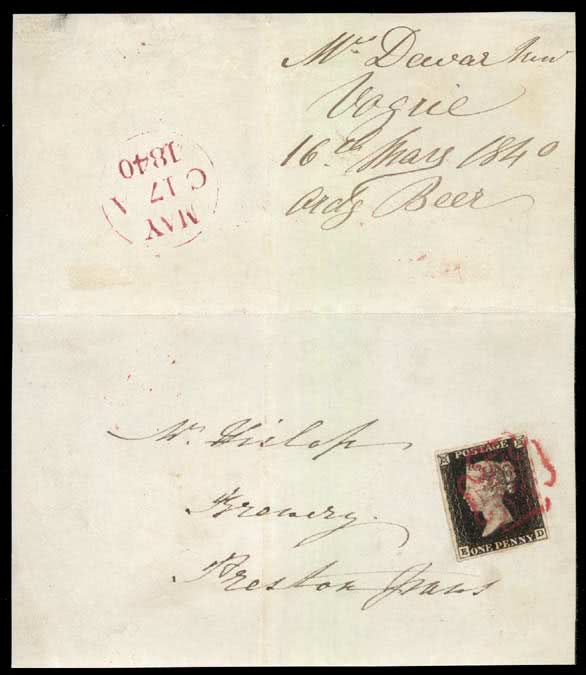 Mr Dewar
Vogrie
16th May 1840
Ordg Beer
MAY
C 17 A
1840
Mr Hislop
Brewery.
Preston pans
POSTAGE
E ONE PENNY D